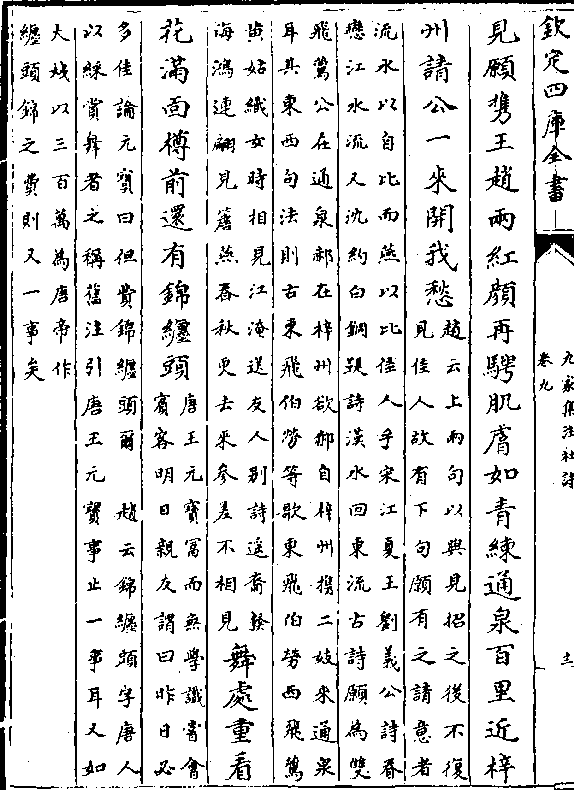 欽定四庫全書
九家集注杜詩
卷九
見願携王趙兩紅顔再騁肌膚如青練通泉百里近梓
州請公一來開我愁
趙云上兩句以興見招之後不復
見佳人故有下句願有之請意者
流水以自比而燕以比佳人乎宋江夏王劉義公詩眷
戀江水流又沈約白銅鞮詩漢水回東流古詩願為雙
飛鷰公在通泉郝在梓州欲郝自梓州携二妓来通泉
耳其東西句法則古東飛伯勞等歌東飛伯勞西飛鷰
黄姑織女時相見江淹送友人别詩遥裔發
海鴻連翩見簷燕春秋更去來參差不相見
舞處重看
花滿面樽前還有錦纏頭
唐王元寶富而無學識嘗會
賓客明日親友謂曰昨日必
多佳論元寶曰但費錦纏頭爾 趙云錦纏頭字唐人
以綵賞舞者之稱舊注引唐王元寶事止一事耳又如
大姨以三百萬為唐帝作
纏頭錦之費則又一事矣